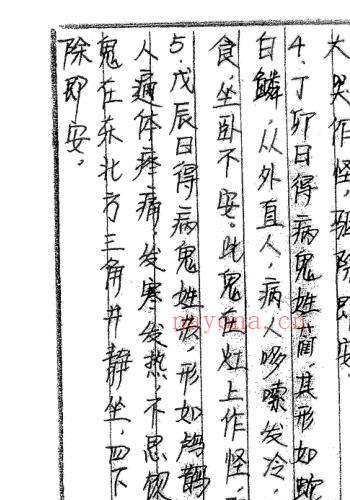 大哭作怪，驱除即安。
4.丁卯日得病鬼姓蔺，其形如蛇
白鳞，从外直人，病人哆嗦发冷，
食，坐卧不安。此鬼在灶上作怪，
5.戊辰日得病鬼姓狄，形如鸪鹊
人遍体疼痛，发寒发热，不思饮
鬼在东北方三角井静坐，四下
除即安。
nayona.cn